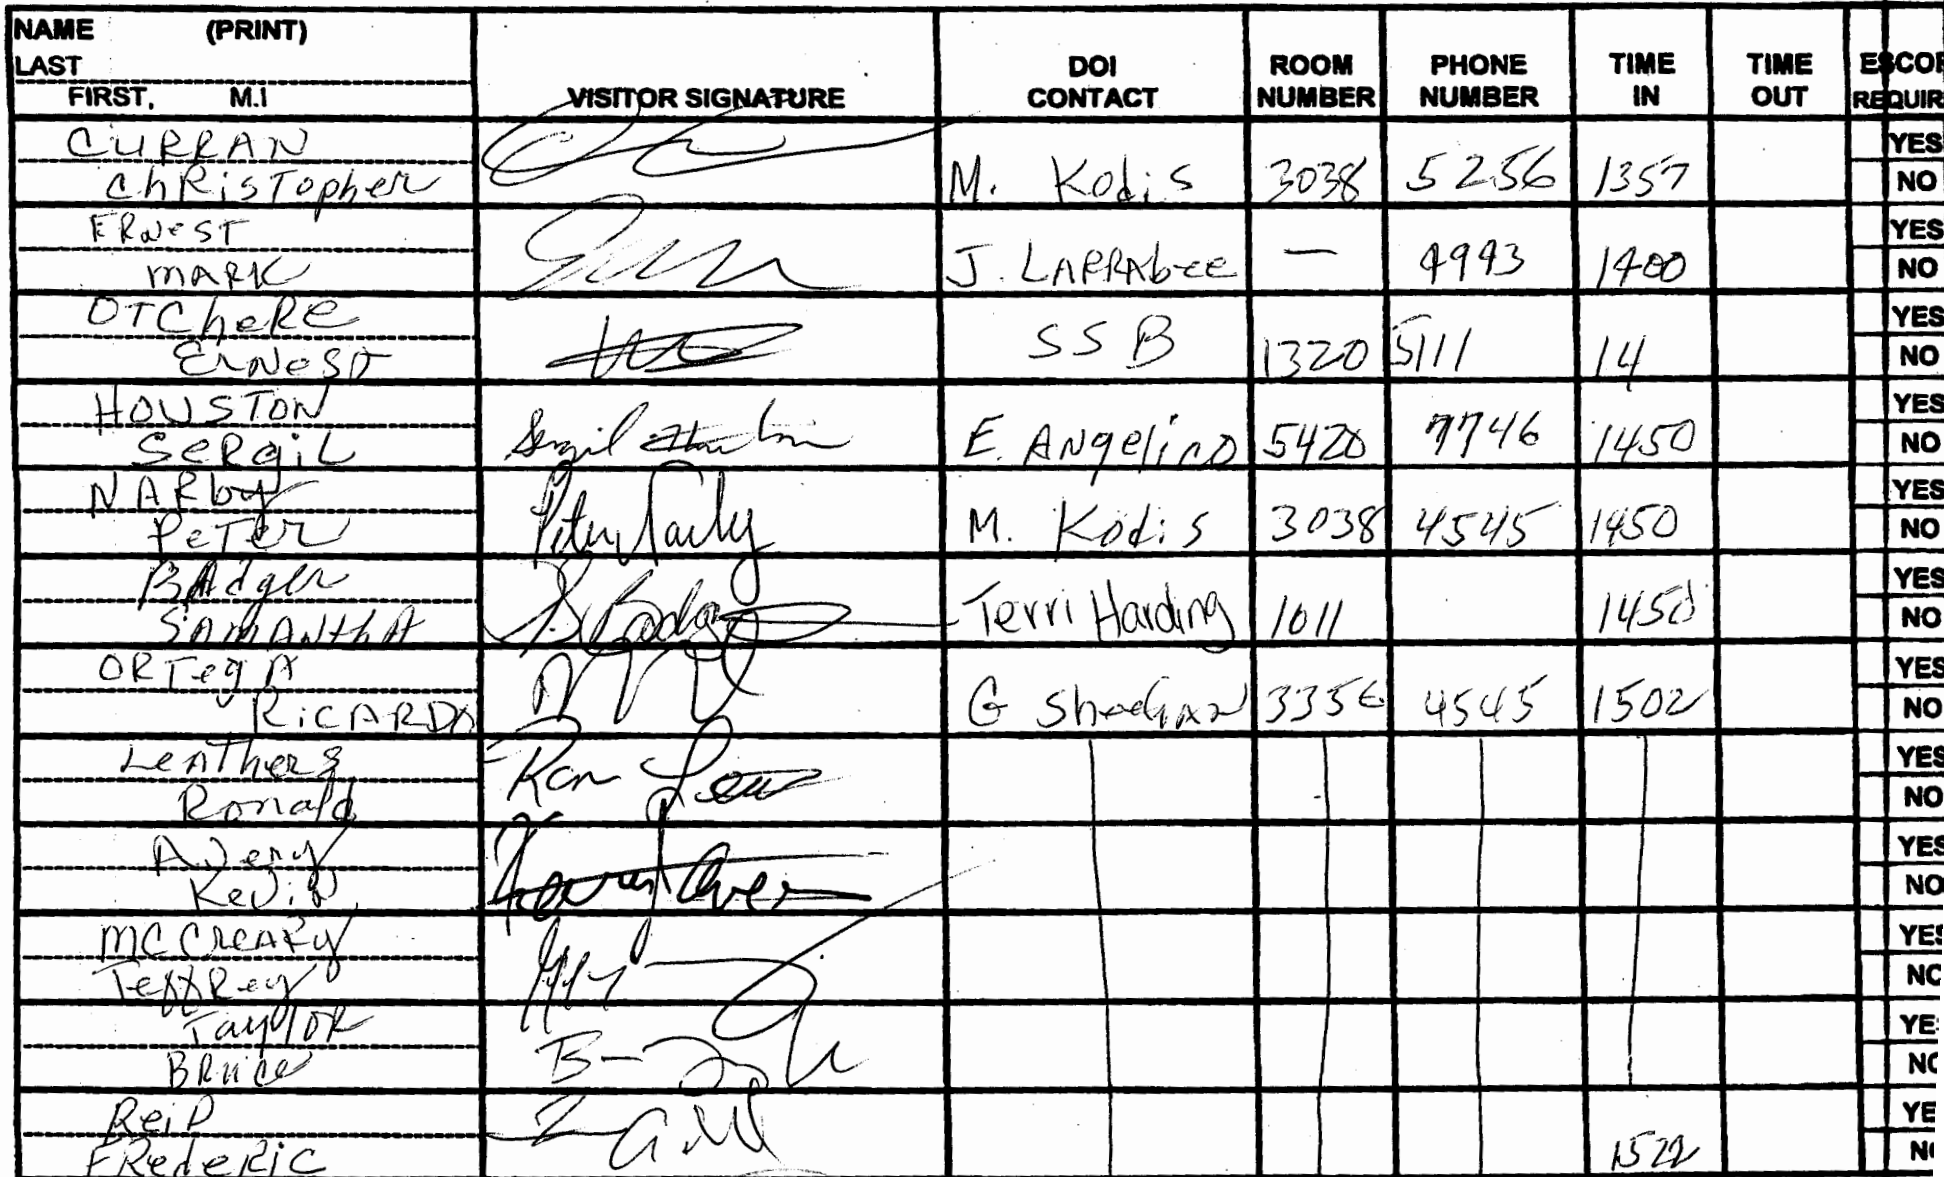 NAME (PRINT)
LAST
FIRST, M.I
VISITOR SIGNATURE
DOI CONTACT
ROOM NUMBER
PHONE NUMBER
TIME IN
TIME OUT
CURRAN
ChRisTopher
M. Kodis 3038 5256 1357
YES
NO
ERNEST
MARK
J. LARRAbee — 4943 1400
YES
NO
OTCheRe
ERNEST
SSB 1320 5111 14
YES
NO
HOUSTON
SeRgiL
E. ANgelino 5420 7746 1450
YES
NO
NARby
PeTer
Peter Narby
M. Kodis 3038 4545 1450
YES
NO
BAdger
SAMANthA
S Badger
Terri Harding 1011 1450
YES
NO
ORTegA
RiCARDo
G Sheehan 3356 4545 1502
YES
NO
LeATHers
Ronald
Ron
YES
NO
Avery
KeviN
YES
NO
MCCReARy
JeffRey
Taylor
BRuce
ReiD
FRedeRiC
1522